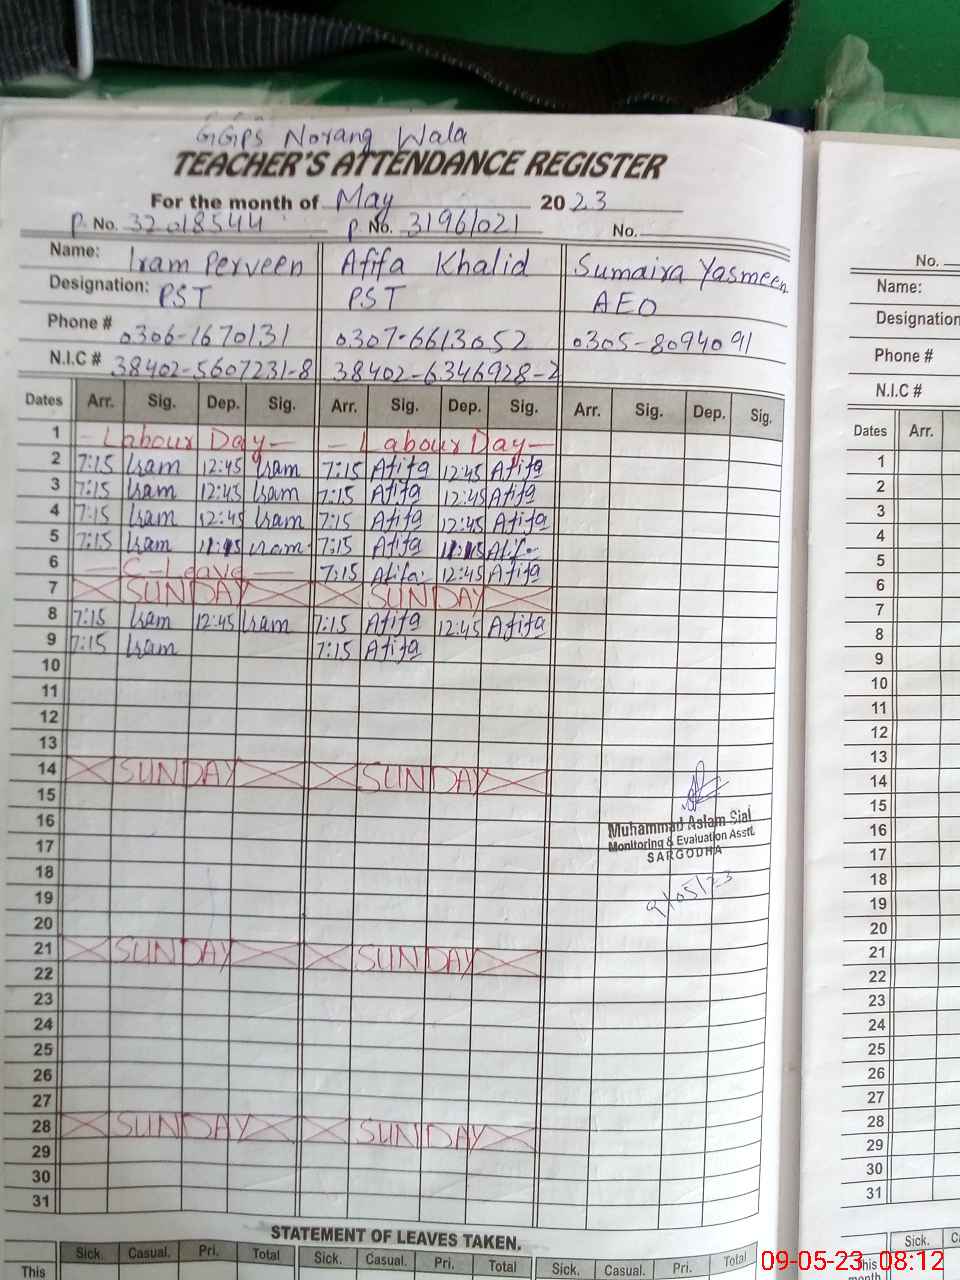 GGPS Norang Wala
TEACHER'S ATTENDANCE REGISTER
For the month of May 2023
P No. 32018544 P No. 31961021 No.
Name: Iram Perveen Afifa Khalid Sumaira Yasmeen
Designation: PST PST AEO
Phone # 0306-1670131 0307-6613052 0305-8094091
N.I.C # 38402-5607231-8 38402-6346928-2
Dates Arr. Sig. Dep. Sig. Arr. Sig. Dep. Sig. Arr. Sig. Dep. Sig.
1 - Labour Day - - Labour Day -
2 7:15 Iram 12:45 Iram 7:15 Afifa 12:45 Afifa
3 7:15 Iram 12:45 Iram 7:15 Afifa 12:45 Afifa
4 7:15 Iram 12:45 Iram 7:15 Afifa 12:45 Afifa
5 7:15 Iram Iram 7:15 Afifa Afifa
6 - C-Leave - 7:15 Afifa 12:45 Afifa
7 SUNDAY SUNDAY
8 7:15 Iram 12:45 Iram 7:15 Afifa 12:45 Afifa
9 7:15 Iram 7:15 Afifa
10
11
12
13
14 SUNDAY SUNDAY
15
16
17
18
19
20
21 SUNDAY SUNDAY
22
23
24
25
26
27
28 SUNDAY SUNDAY
29
30
31
Muhammad Aslam Sial
Monitoring & Evaluation Asstt.
SARGODHA
9/05/23
STATEMENT OF LEAVES TAKEN.
Sick. Casual. Pri. Total Sick. Casual. Pri. Total Sick. Casual. Pri. Total
This
No.
Name:
Designation
Phone #
N.I.C #
Dates Arr.
1
2
3
4
5
6
7
8
9
10
11
12
13
14
15
16
17
18
19
20
21
22
23
24
25
26
27
28
29
30
31
Sick.
This
month
09-05-23 08:12